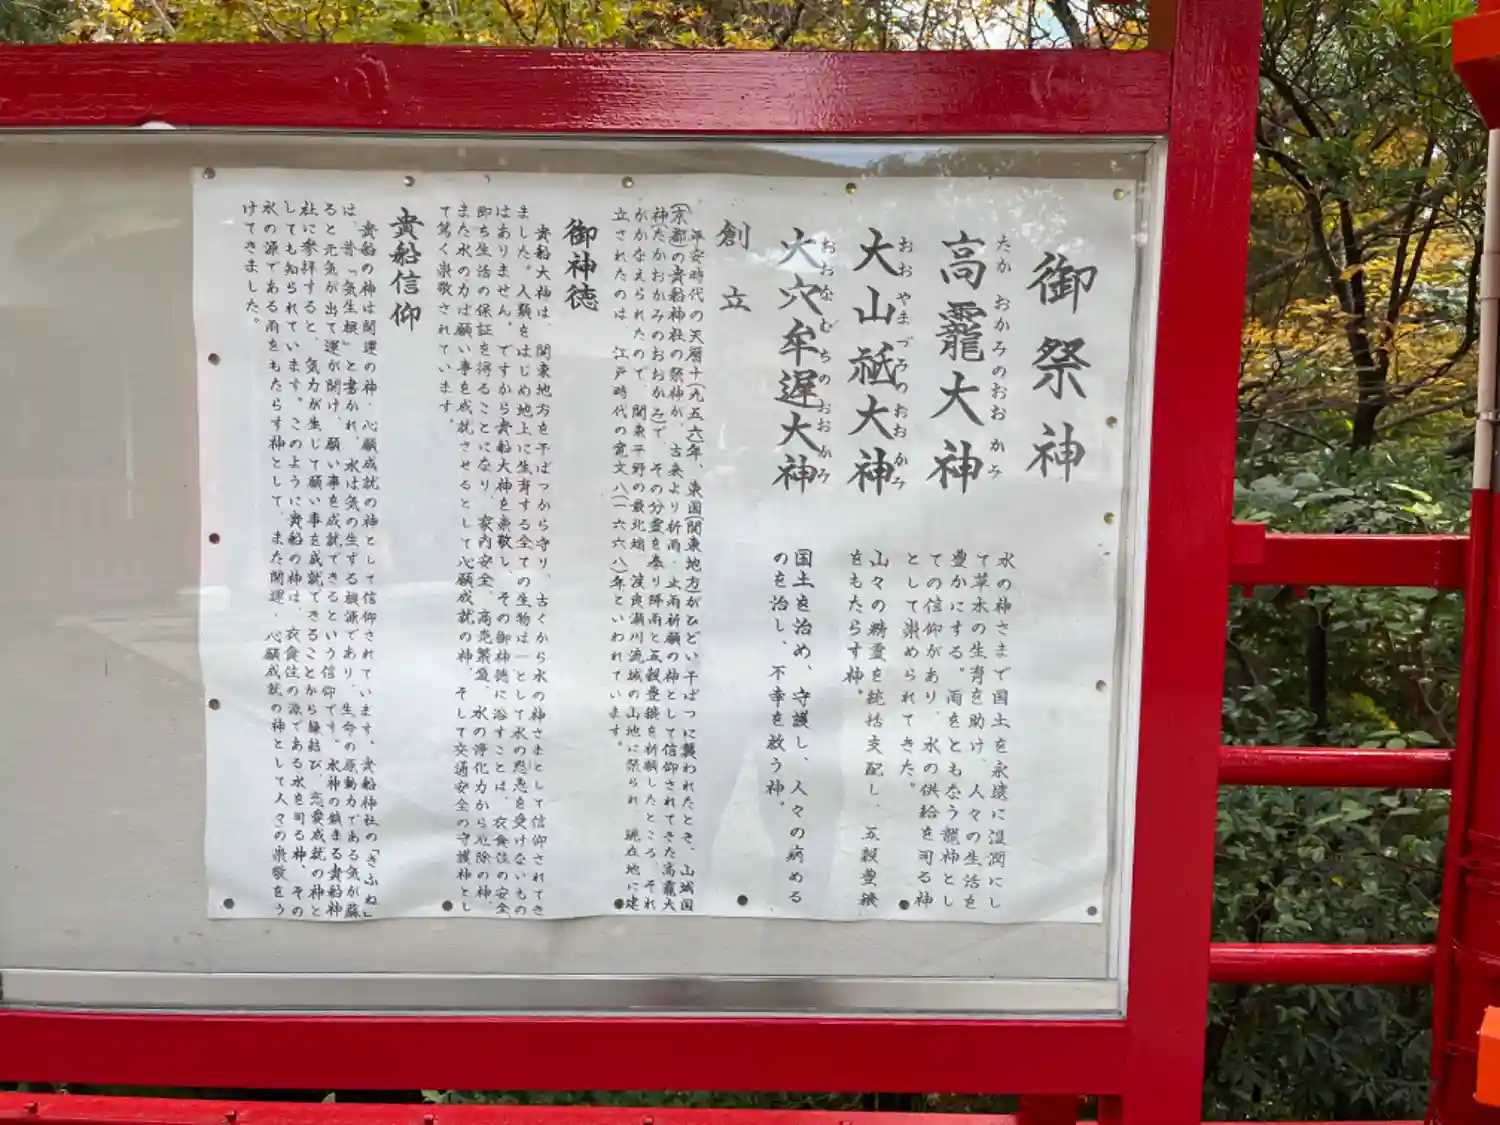 御祭神
たか おかみのおおかみ
高龗大神
水の神さまで国土を永遠に湿潤にし
て草木の生育を助け、人々の生活を
豊かにする。雨をともなう龍神とし
ての信仰があり、水の供給を司る神
として崇められてきた。
おおやまづみのおおかみ
大山祇大神
山々の精霊を統括支配し、五穀豊穣
をもたらす神。
おおなむちのおおかみ
大穴牟遅大神
国土を治め、守護し、人々の病める
のを治し、不幸を救う神。
創立
平安時代の天暦十(九五六)年、東国(関東地方)がひどい干ばつに襲われたとき、山城国
(京都)の貴船神社の祭神が、古来より祈雨・止雨祈願の神として信仰されてきた高龗大
神(たかおかみのおおかみ)で、その分霊を奉り降雨と五穀豊穣を祈願したところ、それ
がかなえられたので、関東平野の最北端、渡良瀬川流域の山地に祭られ、現在地に建
立されたのは、江戸時代の寛文八(一六六八)年といわれています。
御神徳
貴船大神は、関東地方を干ばつから守り、古くから水の神さまとして信仰されてき
ました。人類をはじめ地上に生育する全ての生物は一として水の恩恵を受けないもの
はありません。ですから貴船大神を崇敬し、その御神徳に浴すことは、衣食住の安全、
即ち生活の保証を得ることになり、家内安全、商売繁盛、水の浄化力から厄除の神、
また水の力は願い事を成就させるとして心願成就の神、そして交通安全の守護神とし
て篤く崇敬されています。
貴船信仰
貴船の神は開運の神・心願成就の神として信仰されています。貴船神社の「きふね」
は、昔「気生根」と書かれ、水は気の生ずる根源であり、生命の原動力である気が蘇
ると元気が出て運が開け、願い事を成就できるという信仰です。水神の鎮まる貴船神
社に参拝すると、気力が生じて願い事を成就できることから縁結び、恋愛成就の神と
しても知られています。このように貴船の神は、衣食住の源である水を司る神、その
水の源である雨をもたらす神として、また開運・心願成就の神として人々の崇敬をう
けてきました。